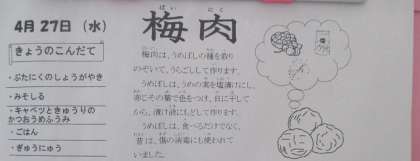 4月27日（水）
きょうのこんだて
・ぶたにくのしょうがやき
・みそしる
・キャベツときゅうりの
かつおうめふうみ
・ごはん
・ぎゅうにゅう
ばい にく
梅肉
梅肉は、うめぼしの種を取り
のぞいて、うらごしして作ります。
うめぼしは、うめの実を塩漬けにし、
赤じその葉で色をつけ、日に干して
から、漬け液にもどして作ります。
うめぼしは、食べるだけでなく、
昔は、傷の消毒にも使われて
いました。